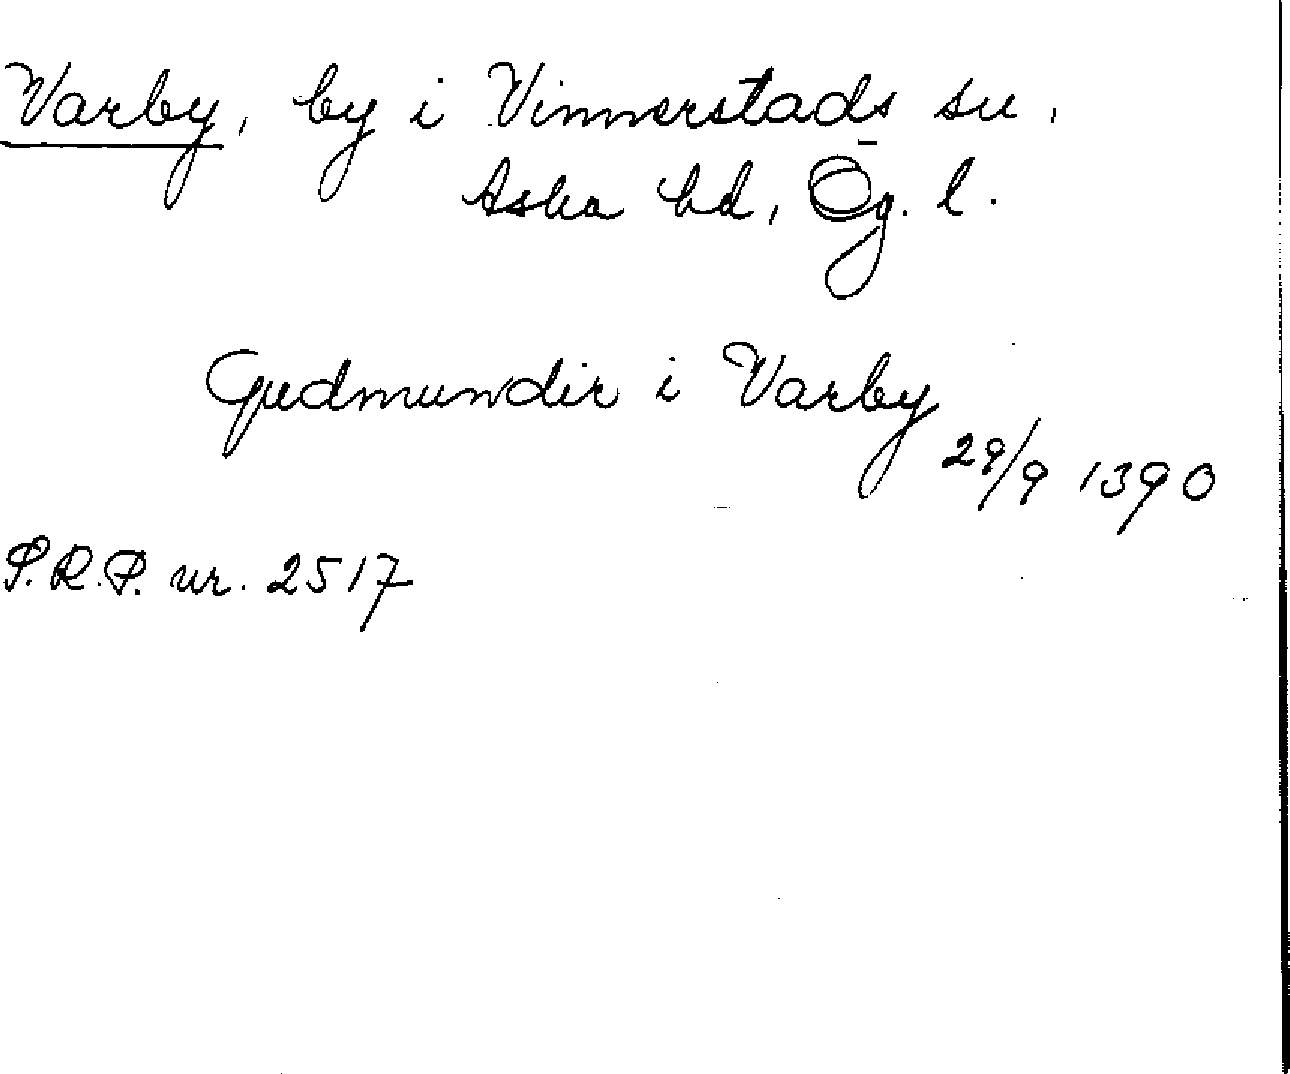 Varby, by i Vinnerstads sn,
Aska hd, Ög. l.
Gudmundir i Varby
29/9 1390
S.R.P. nr. 2517